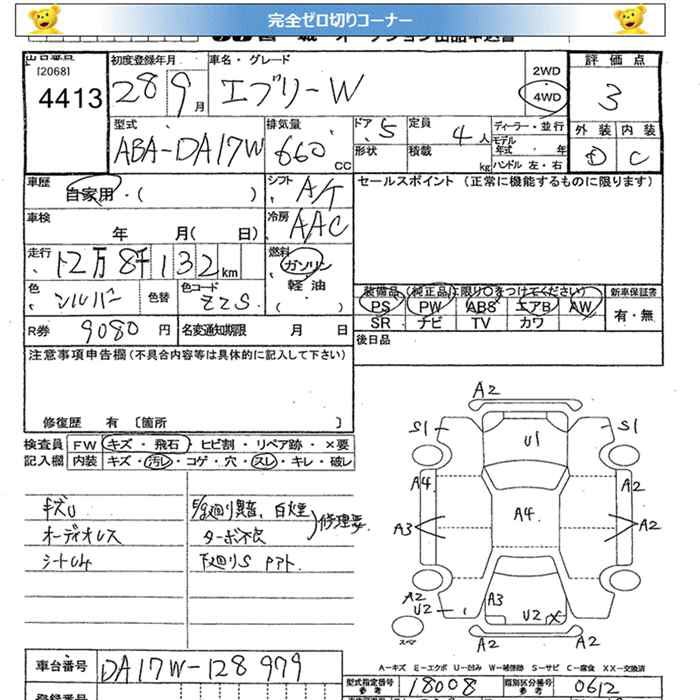 完全ゼロ切りコーナー
[2068]
4413
初度登録年月
28 9月
車名・グレード
エブリーW
2WD
4WD
評価点
3
型式
ABA-DA17W
排気量
660 CC
ドア 5
定員 4人
形状
積載 kg
ディーラー・並行
モデル年式・年
ハンドル 左・右
外装 内装
D C
車歴
自家用・( )
シフト A/T
セールスポイント(正常に機能するものに限ります)
車検
年 月( 日)
冷房 AAC
走行
12万8千132km
燃料
ガソリン
軽油
( )
色 シルバー
色替
色コード ZZS
装備品(純正品に限り○をつけてください)
新車保証書
PS PW ABS エアB AW
SR ナビ TV カワ
有・無
R券 9080円
名変通知期限 月 日
後日品
注意事項申告欄(不具合内容等は具体的に記入して下さい)
修復歴 有〔箇所 〕
検査員 FW キズ・飛石・ヒビ割・リペア跡・×要
記入欄 内装 キズ・汚レ・コゲ・穴・スレ・キレ・破レ
キズU
オーディオレス
E/g廻り異音、白煙
ターボ不良
修理要
下廻りS
A2
S1 U1 S1
A4 A2
A3 A4 A2
A2 A3
U2 U2
スマ
A2 A2
A-キズ E-エクボ U-凹み W-補修跡 S-サビ C-腐食 XX-交換済
車台番号 DA17W-128979
型式指定番号 参考 18008
類別区分番号 参考 0612
登録番号